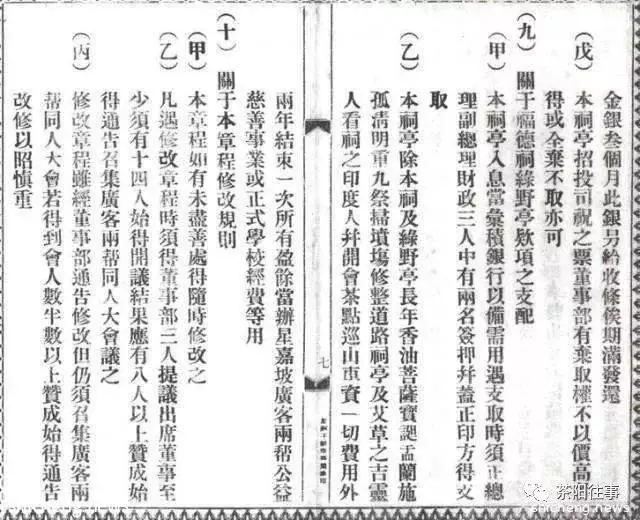 金銀叁個月此銀另給收條俟期滿發還
（戊）本祠亭招投司祝之票董事部有棄取權不以價高
得或全棄不取亦可
（九）關于福德祠綠野亭欵項之支配
（甲）本祠亭入息當彙積銀行以備需用遇支取時須正總
理副總理財政三人中有兩名簽押幷蓋正印方得支
取
（乙）本祠亭除本祠及綠野亭長年香油菩薩寶誕盂蘭施
孤清明重九祭掃墳塲修整道路祠亭及艾草之吉靈
人看祠之印度人幷開會茶點巡山車資一切費用外
七
兩年結束一次所有盈餘當辦星嘉坡廣客兩帮公益
慈善事業或正式學校經費等用
（十）關于本章程修改規則
（甲）本章程如有未盡善處得隨時修改之
（乙）凡遇修改章程時須得董事部三人提議出席董事至
少須有十四人始得開議結果應有八人以上贊成始
得通告召集廣客兩帮同人大會議之
（丙）修改章程雖經董事部通告修改但仍須召集廣客兩
帮同人大會若得到會人數半數以上贊成始得通告
改修以昭慎重
茶阳往事
shicheng.news